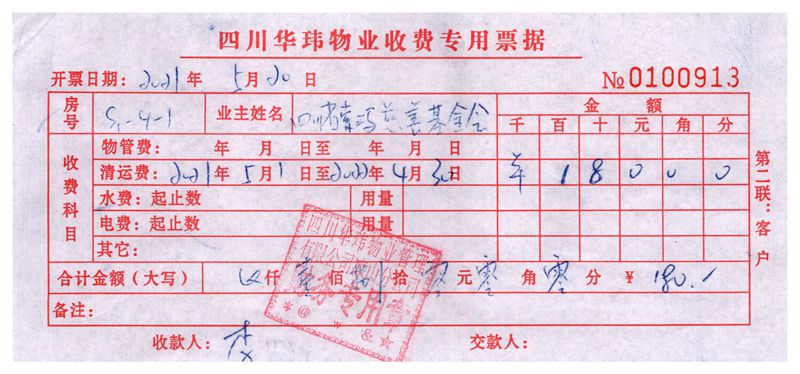 四川华玮物业收费专用票据
开票日期：2021年 5月20日 №0100913
房号 5-4-1 业主姓名 四川省索玛慈善基金会 金额
千 百 十 元 角 分
收费科目
物管费： 年 月 日至 年 月 日
清运费：2021年 5月1日至2022年4月30日 1 8 0 0 0
水费：起止数 用量
电费：起止数 用量
其它：
合计金额（大写） 仟 壹佰 捌拾 零元 零角 零分 ￥180.
备注：
收款人： 交款人：
第二联：客户
四川华玮物业管理
有限公司
财务专用章